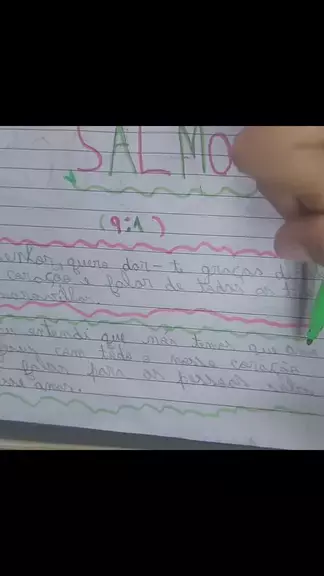 SALMO
(9:1)
enhor, quero dar-te graças d
coração e falar de todas as t
maravilhas.
eu entendi que nós temos que am
com todo o nosso coração
falar para as pessoas sobre
esse amor.